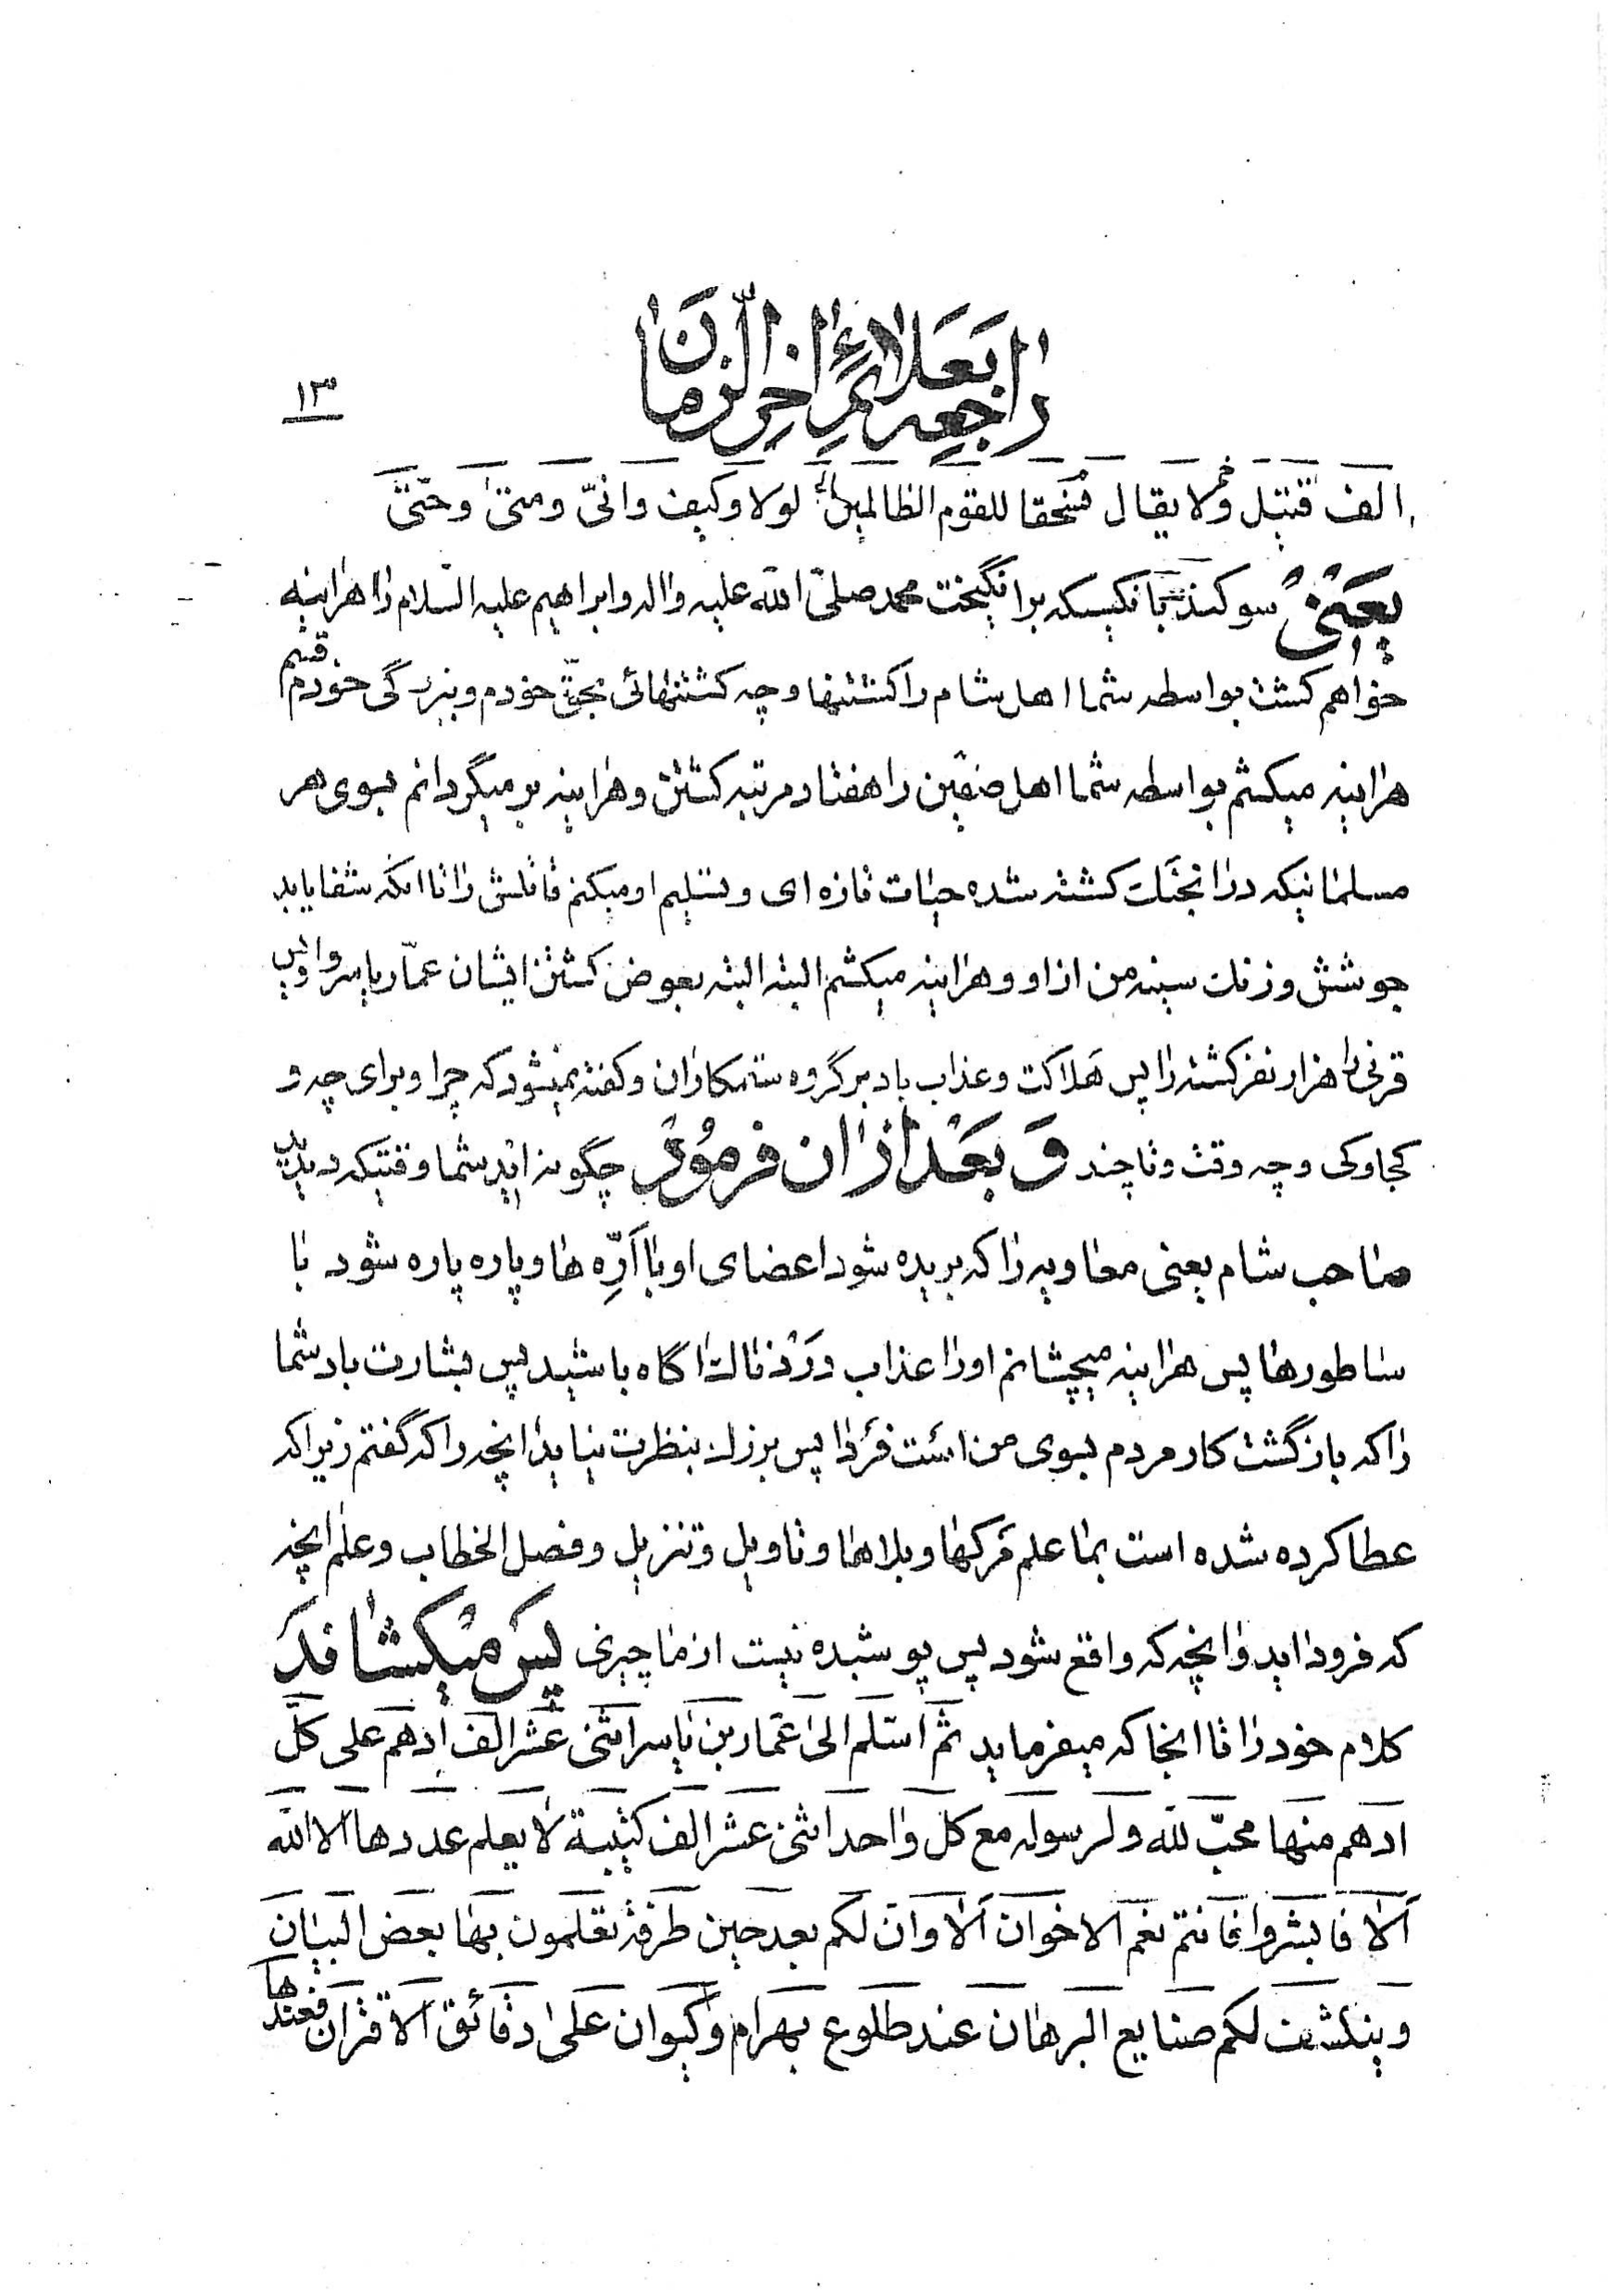 راجعه بعلائم اخر الزمان
۱۳
الف قتیل ولا یقال فسحقا للقوم الظالمین لولا وکیف وانّی ومتیٰ وحتّیٰ
یعنی سوکند بانکیسکه برانگیخت محمد صلی الله علیه واله وابراهیم علیه السّلام را هراینه
خواهم کشت بواسطه شما اهل شام را کشتنها و چه کشتنهائی بحقّ خودم وبزرگی خودم قسم
هراینه میکشم بواسطه شما اهل صفین را هفتاد مرتبه کشتن وهراینه برمیگردانم بسوی هر
مسلمانیکه درانجنك کشته شده حیات تازه ای وتسلیم او میکنم قاتلش را تا انکه شفا یابد
جوشش وزنك سینه من از او وهراینه میکشم البته البته بعوض کشتن ایشان عمّار یاسر واویس
قرنی را هزار نفر کشته را پس هلاکت وعذاب باد بر گروه ستمکاران وکفته نمیشود که چرا وبرای چه و
کجا وکی وچه وقت وتاچند وَ بَعْد از ان فرمُود چگونه اید شما وقتیکه دیدید
صاحب شام یعنی معاویه را که بریده شود اعضای او با اَرّه ها وپاره پاره شود با
ساطورها پس هراینه میچشانم اورا عذاب دَرْدناك اگاه باشید پس بشارت باد شما
را که بازگشت کار مردم بسوی من است فَرْدا پس بزرك بنظرت نیاید انچه را که گفتم زیرا که
عطا کرده شده است بما علم مَرکها وبلاها وتاویل وتنزیل وفصل الخطاب وعلم انچه
که فرود اید وانچه که واقع شود پس پوشیده نیست از ما چیزی پس میکشاند
کلام خود را تا انجا که میفرماید ثم اسلم الیٰ عمار بن یاسر اثنی عشر الف ادهم علی کلّ
ادهم منها محبّ للّه ولرسوله مع کل واحد اثنی عشر الف کتیبة لا یعلم عددها الا اللّه
اَلا فابشروا فانتم نعم الاخوان اَلا وان لکم بعد حین طرفة تعلمون بها بعض البیان
وینکشف لکم صنایع البرهان عند طلوع بهرام وکیوان علیٰ دقائق الاقتران فعندها